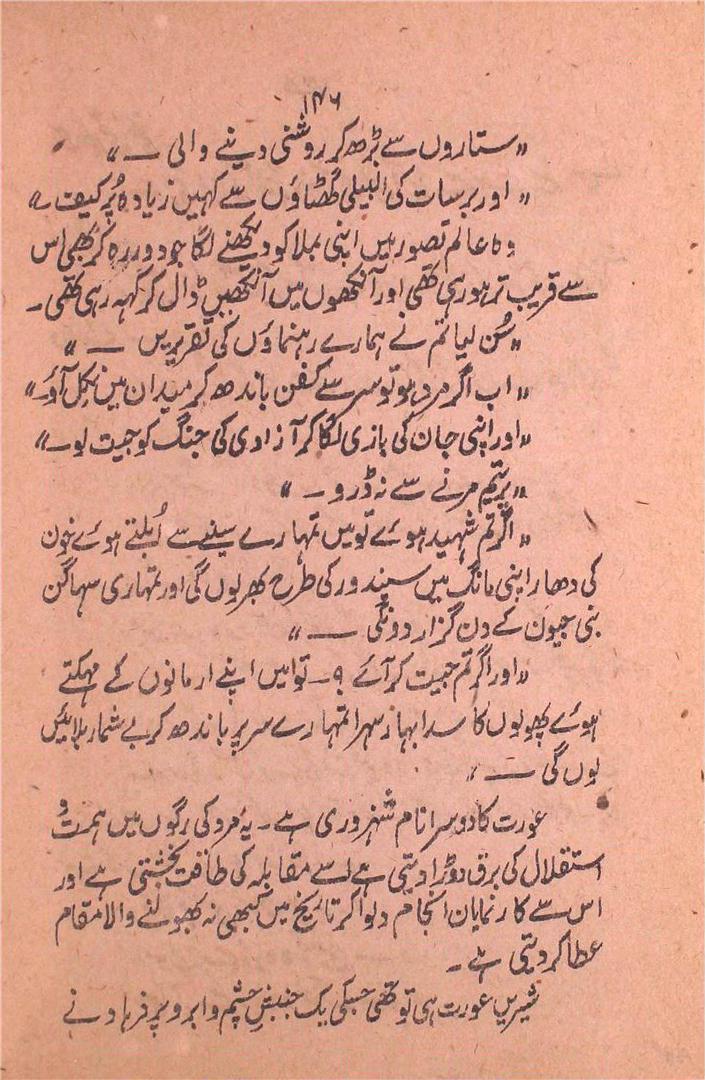 ۱۴۶
"ستاروں سے بڑھ کر روشنی دینے والی ــــ"
"اور برسات کی البیلی گھٹاؤں سے کہیں زیادہ پُر کیف۔"
وہ عالم تصور میں اپنی بملا کو دیکھنے لگا جو دور رہ کر بھی اس
سے قریب تر ہو رہی تھی اور آنکھوں میں آنکھیں ڈال کر کہہ رہی تھی۔
"سُن لیا تم نے ہمارے رہنماؤں کی تقریریں ــــ"
"اب اگر مرد ہو تو سر سے کفن باندھ کر میدان میں نکل آؤ۔"
"اور اپنی جان کی بازی لگا کر آزادی کی جنگ کو جیت لو۔"
"پریتم مرنے سے نہ ڈرو۔"
"اگر تم شہید ہوئے تو میں تمہارے سینے سے اُبلتے ہوئے خون
کی دھار اپنی مانگ میں سیندور کی طرح بھر لوں گی اور تمہاری سہاگن
بنی جیون کے دن گزار دونگی ــــ"
"اور اگر تم جیت کر آئے ؟۔ تو میں اپنے ارمانوں کے مہکتے
ہوئے پھولوں کا سدا بہار سہرا تمہارے سر پر باندھ کر بے شمار بلائیں
لوں گی ــــ"
عورت کا دوسرا نام شہزوری ہے۔ یہ مرد کی رگوں میں ہمت و
استقلال کی برق دوڑا دیتی ہے اسے مقابلہ کی طاقت بخشتی ہے اور
اس سے کار نمایاں انجام دلوا کر تاریخ میں کبھی نہ بھولنے والا مقام
عطا کر دیتی ہے۔
شیریں عورت ہی تو تھی جسکی یک جنبشِ چشم و ابرو پر فرہاد نے